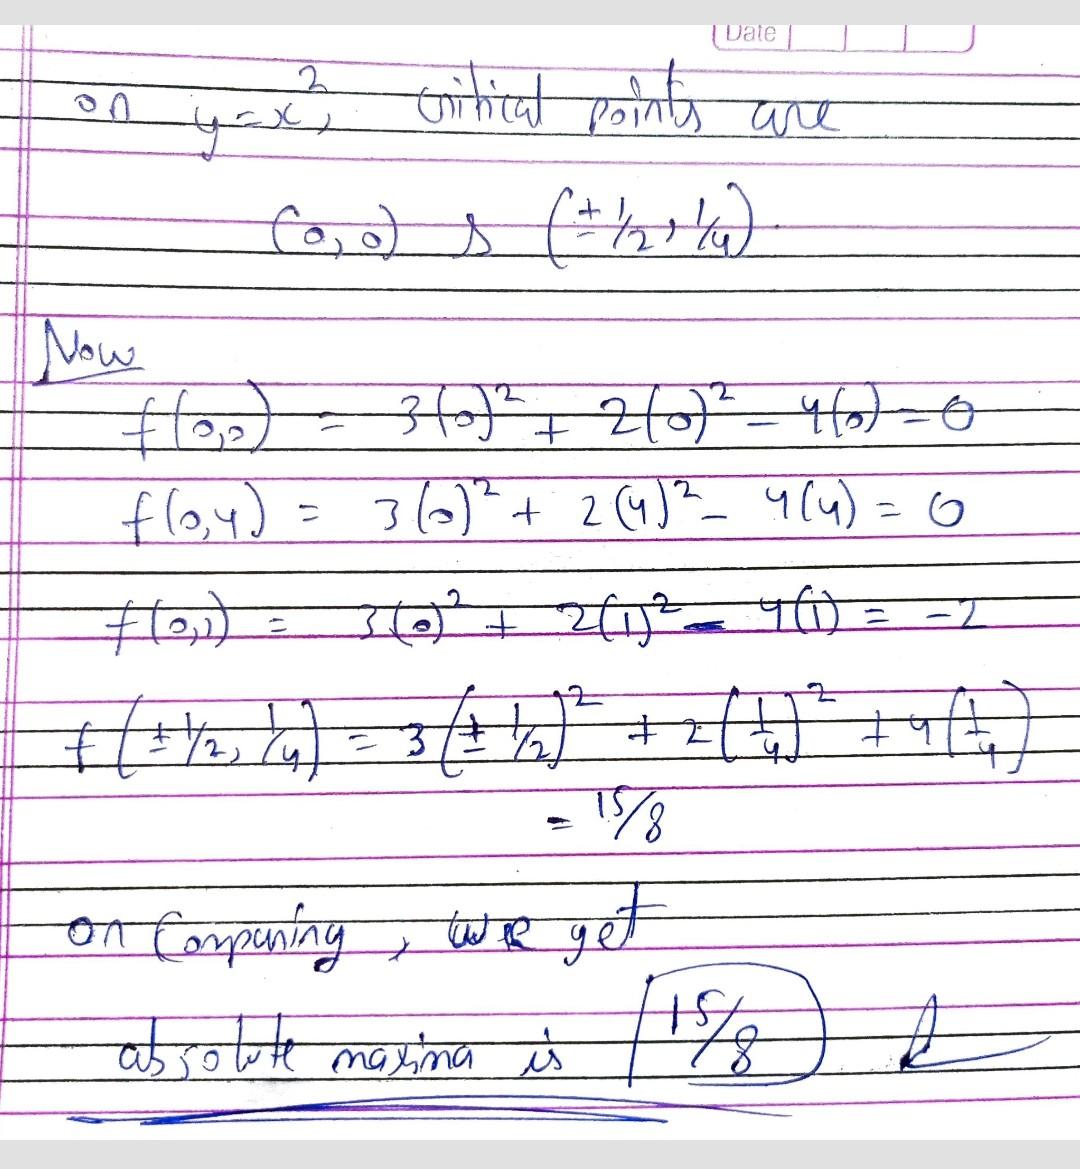 Date
on y=x², critical points are
(0,0) & (±1/2, 1/4).
Now
f(0,0) = 3(0)² + 2(0)² - 4(0) = 0
f(0,4) = 3(0)² + 2(4)² - 4(4) = 0
f(0,1) = 3(0)² + 2(1)² - 4(1) = -2
f(±1/2, 1/4) = 3(±1/2)² + 2(1/4)² + 4(1/4)
= 15/8
on Comparing, we get
absolute maxima is 15/8